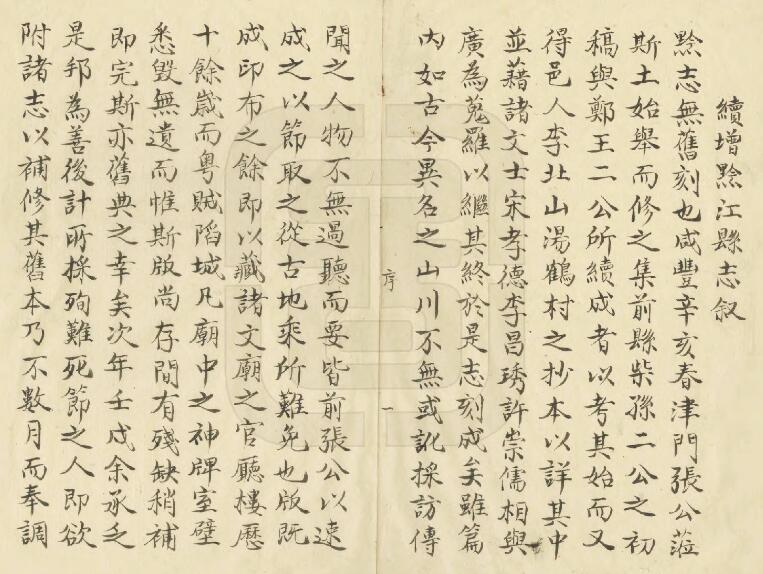 續增黔江縣志叙
黔志無舊刻也咸豐辛亥春津門張公蒞
斯土始舉而修之集前縣柴孫二公之初
稿與鄭王二公所續成者以考其始而又
得邑人李北山湯鶴村之抄本以詳其中
並藉諸文士宋孝德李昌琇許崇儒相與
廣為蒐羅以繼其終於是志刻成矣雖篇
内如古今異名之山川不無或訛採訪傳
序
一
聞之人物不無過聽而要皆前張公以速
成之以節取之從古地乘所難免也版既
成印布之餘即以藏諸文廟之官廳樓歷
十餘歲而粵賊陷城凡廟中之神牌室壁
悉毀無遺而惟斯版尚存間有殘缺稍補
即完斯亦舊典之幸矣次年壬戌余承乏
是邦為善後計所採殉難死節之人即欲
附諸志以補修其舊本乃不數月而奉調